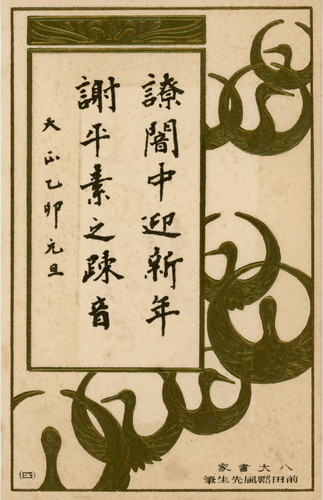 諒闇中迎新年
謝平素之疎音
大正乙卯元旦
八大書家
前田黙鳳先生筆
(四)